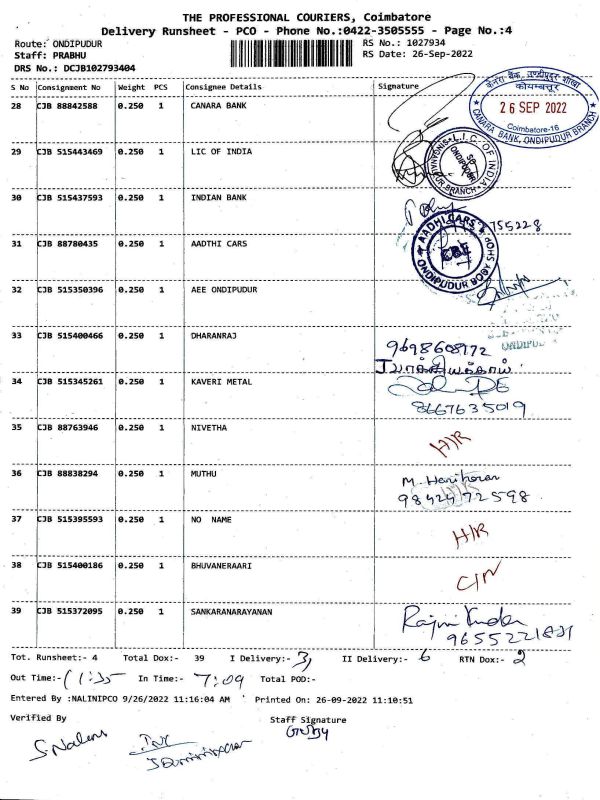 THE PROFESSIONAL COURIERS, Coimbatore
Delivery Runsheet - PCO - Phone No.:0422-3505555 - Page No.:4
Route: ONDIPUDUR RS No.: 1027934
Staff: PRABHU RS Date: 26-Sep-2022
DRS No.: DCJB102793404
S No Consignment No Weight PCS Consignee Details Signature
28 CJB 88842588 0.250 1 CANARA BANK
केनरा बैंक, उण्डीपुदूर शाखा
कोयम्बत्तूर
26 SEP 2022
Coimbatore-16
CANARA BANK, ONDIPUDUR BRANCH
29 CJB 515443469 0.250 1 LIC OF INDIA
L.I.C. OF INDIA
SO ONDIPUDUR
30 CJB 515437593 0.250 1 INDIAN BANK
755228
31 CJB 88780435 0.250 1 AADTHI CARS
AADHI CARS
CBE
ONDIPUDUR BODY SHOP
32 CJB 515350396 0.250 1 AEE ONDIPUDUR
33 CJB 515400466 0.250 1 DHARANRAJ
9698608172
34 CJB 515345261 0.250 1 KAVERI METAL
8667635019
35 CJB 88763946 0.250 1 NIVETHA
H/R
36 CJB 88838294 0.250 1 MUTHU
M. Hariharan
9842472598
37 CJB 515395593 0.250 1 NO NAME
H/R
38 CJB 515400186 0.250 1 BHUVANERAARI
C/N
39 CJB 515372095 0.250 1 SANKARANARAYANAN
Tot. Runsheet:- 4 Total Dox:- 39 I Delivery:- 31 II Delivery:- 6 RTN Dox:- 2
Out Time:- 11:35 In Time:- 7:09 Total POD:-
Entered By :NALINIPCO 9/26/2022 11:16:04 AM Printed On: 26-09-2022 11:10:51
Verified By Staff Signature
S.Nalini